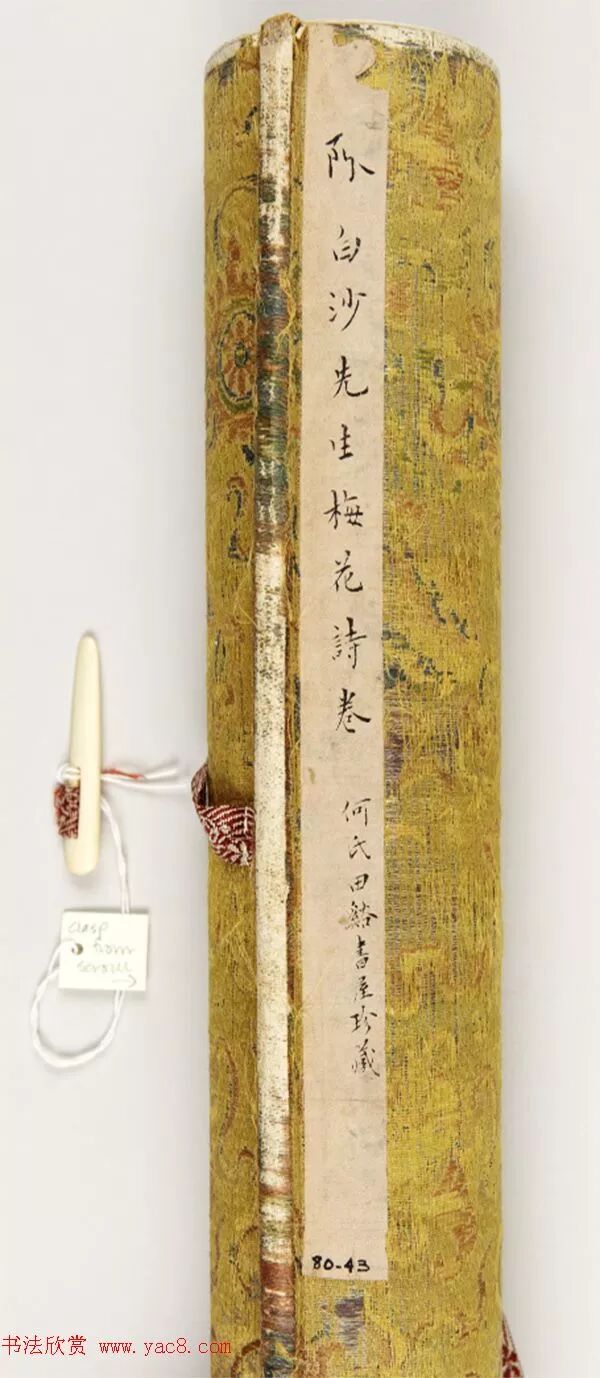 陈白沙先生梅花詩卷
何氏田谿書屋珍藏
80-43
clasp
from
scroll →
书法欣赏 www.yac8.com